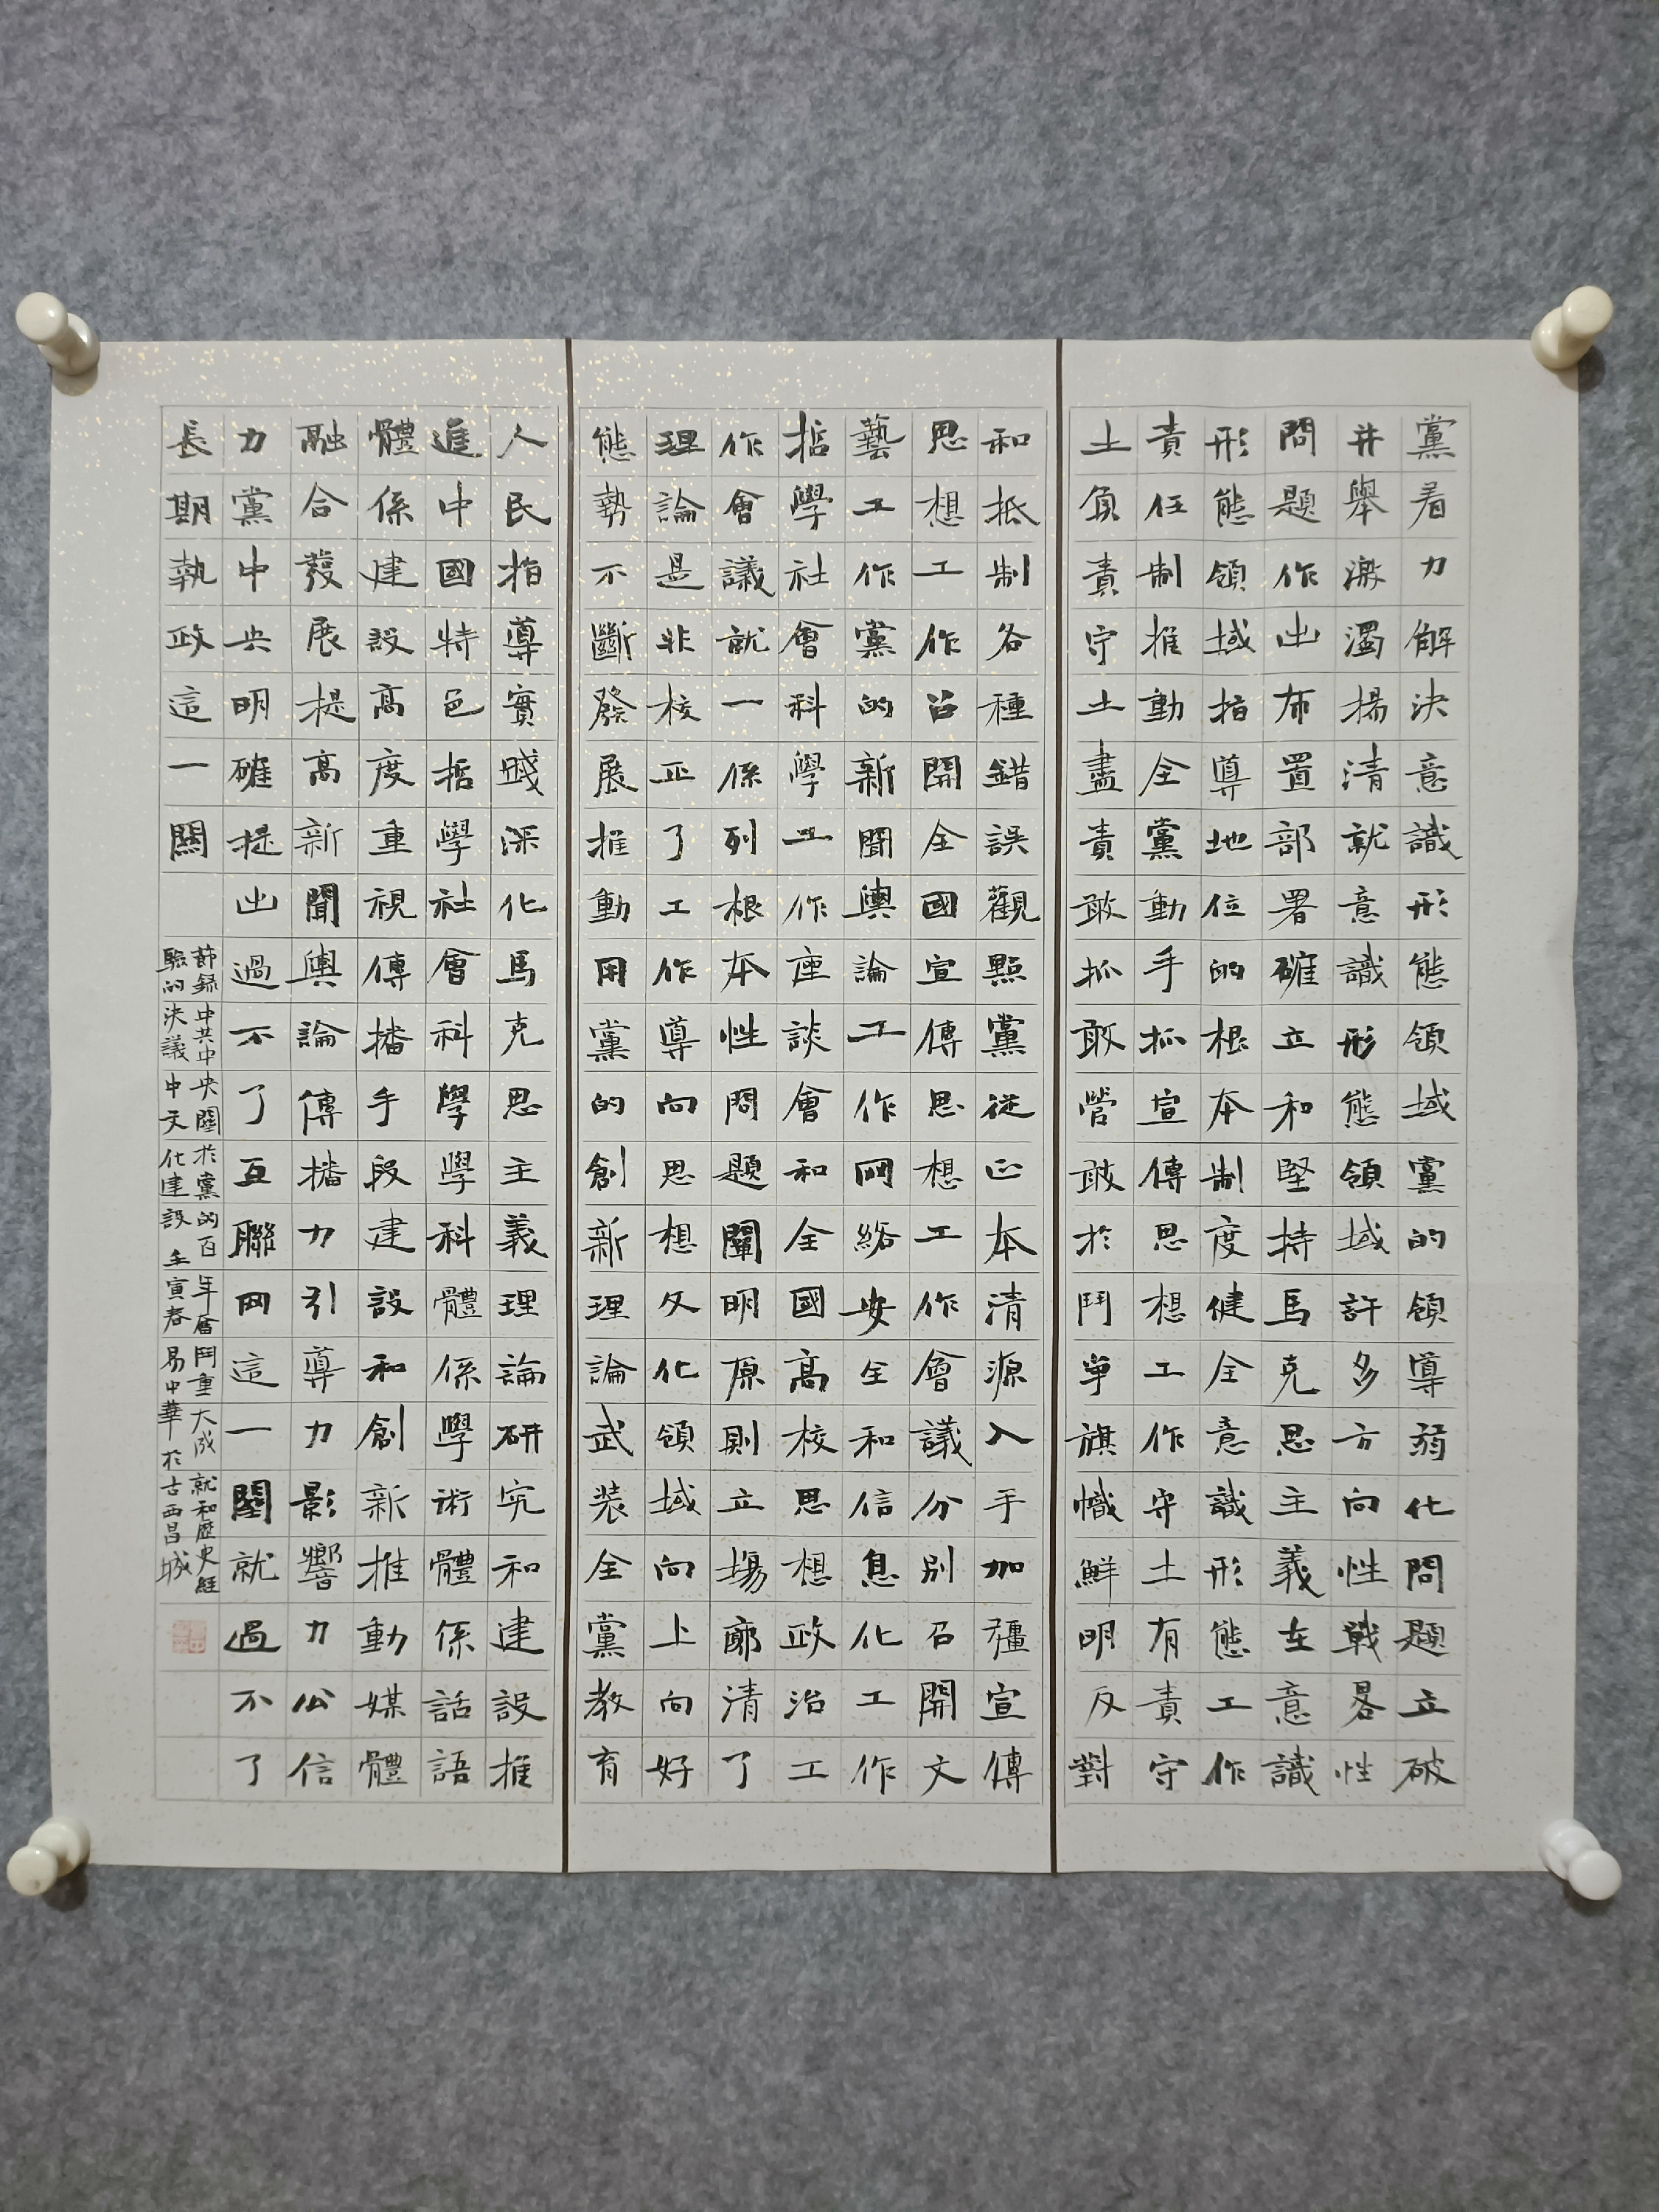 黨着力解決意識形態領域黨的領導弱化問題立破
并舉激濁揚清就意識形態領域許多方向性戰畧性
問題作出布置部署確立和堅持馬克思主義在意識
形態領域指導地位的根本制度健全意識形態工作
責任制推動全黨動手抓宣傳思想工作守土有責守
土負責守土盡責敢抓敢管敢於鬥爭旗幟鮮明反對
和抵制各種錯誤觀點黨從正本清源入手加彊宣傳
思想工作召開全國宣傳思想工作會議分別召開文
藝工作黨的新聞輿論工作网絡安全和信息化工作
哲學社會科學工作座談會和全國高校思想政治工
作會議就一係列根本性問題闡明原則立場廓清了
理論是非校正了工作導向思想文化領域向上向好
態勢不斷發展推動用黨的創新理論武裝全黨教育
人民指導實踐深化馬克思主義理論研究和建設推
進中國特色哲學社會科學學科體係學術體係話語
體係建設高度重視傳播手段建設和創新推動媒體
融合發展提高新聞輿論傳播力引導力影響力公信
力黨中央明確提出過不了互聯网這一關就過不了
長期執政這一關
節錄中共中央關於黨的百年奮鬥重大成就和歷史經
驗的決議中文化建設 壬寅春 易中華於古西昌城